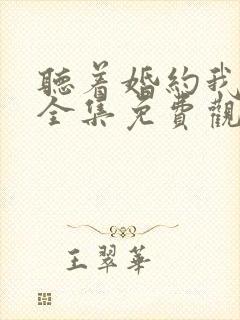 聽着婚約我
全集免費觀
王翠華